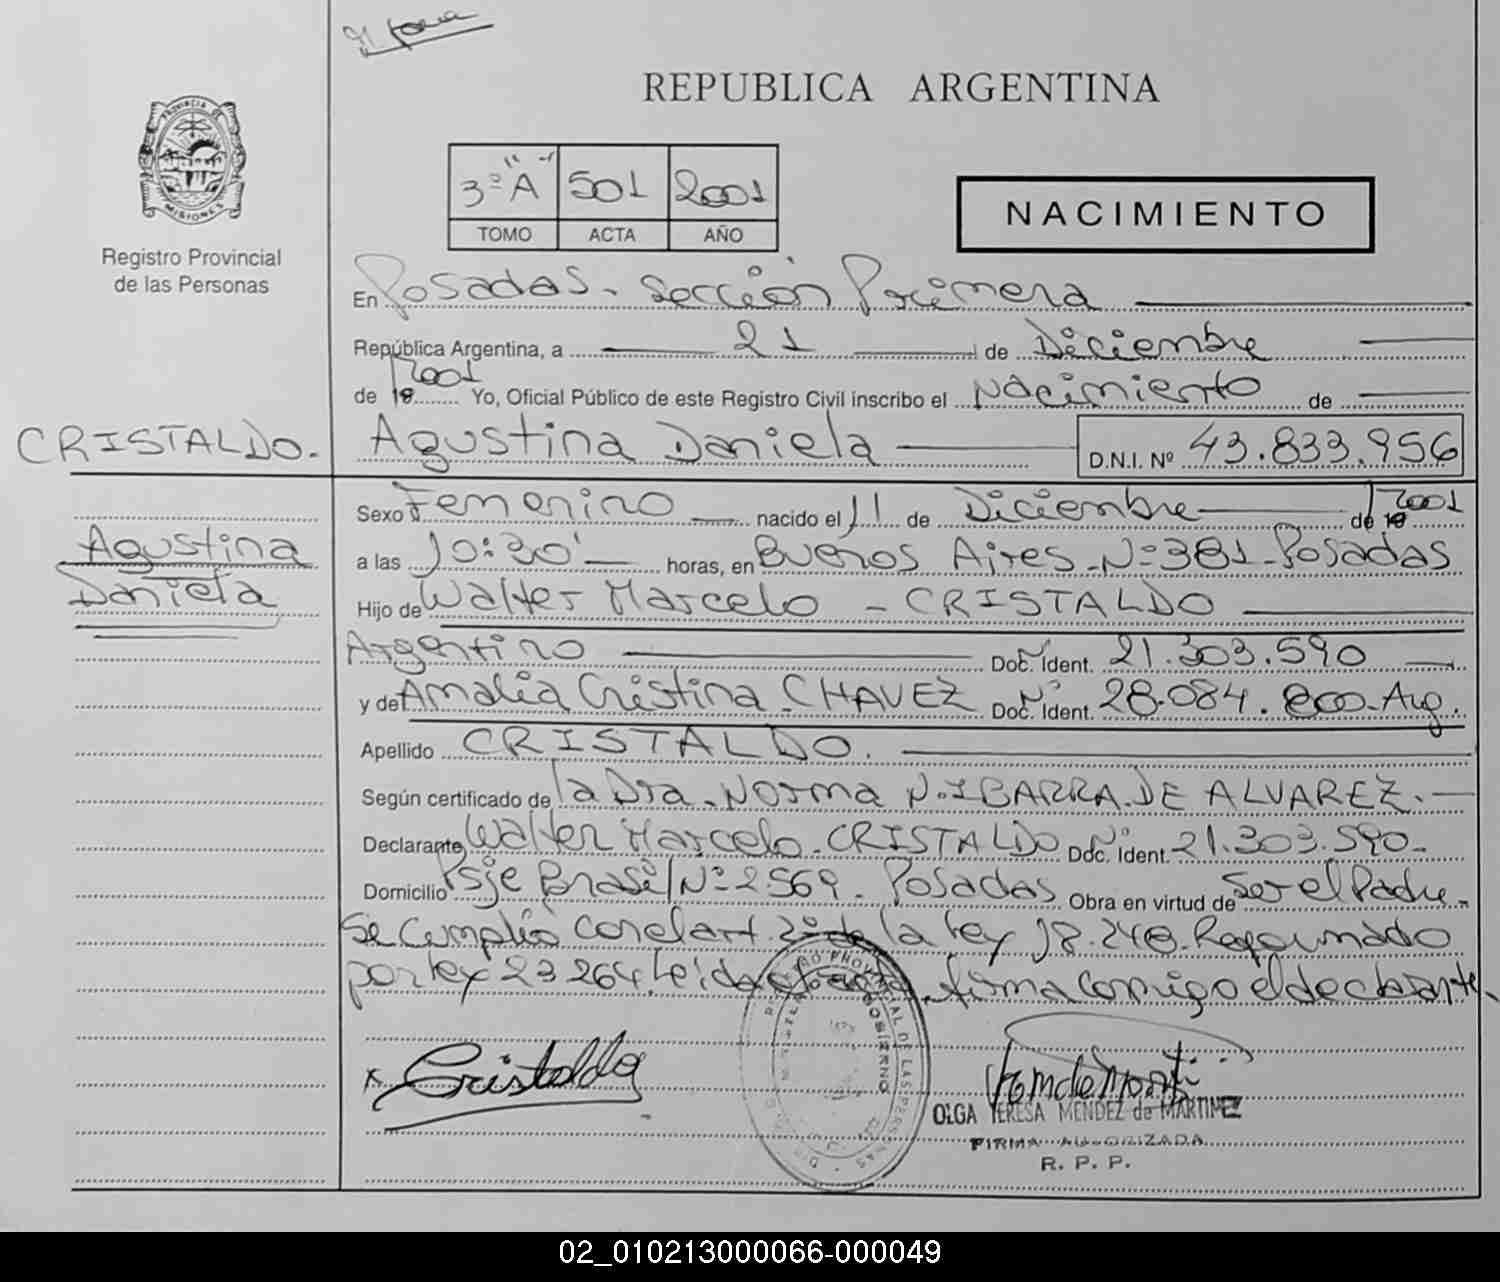 REPUBLICA ARGENTINA
PROVINCIA DE
MISIONES
Registro Provincial
de las Personas
3º "A" 501 2001
TOMO ACTA AÑO
NACIMIENTO
En Posadas - Sección Primera
República Argentina, a 21 de Diciembre
de 19 2001 Yo, Oficial Público de este Registro Civil inscribo el Nacimiento de
CRISTALDO. Agustina Daniela D.N.I. Nº 43.833.956
Agustina
Daniela
Sexo Femenino nacido el 11 de Diciembre de 19 2001
a las 10:30' horas, en Buenos Aires - Nº 381 - Posadas
Hijo de Walter Marcelo - CRISTALDO
Argentino Doc. Nº Ident. 21.303.590
y de Amalia Cristina CHAVEZ Doc. Nº Ident. 28.084.800 - Arg.
Apellido CRISTALDO.
Según certificado de la Dra. Norma N. IBARRA DE ALVAREZ.
Declarante Walter Marcelo - CRISTALDO Doc. Nº Ident. 21.303.590 -
Domicilio Psje Brasil Nº 2569 - Posadas. Obra en virtud de Ser el Padre -
Se cumplió con el art. 2º de la ley 18.248 - Reformado
por ley 23.264. Leída el acta, firma conmigo el declarante.
x Cristaldo
OLGA TERESA MENDEZ de MARTINEZ
FIRMA AUTORIZADA
R. P. P.
02_010213000066-000049